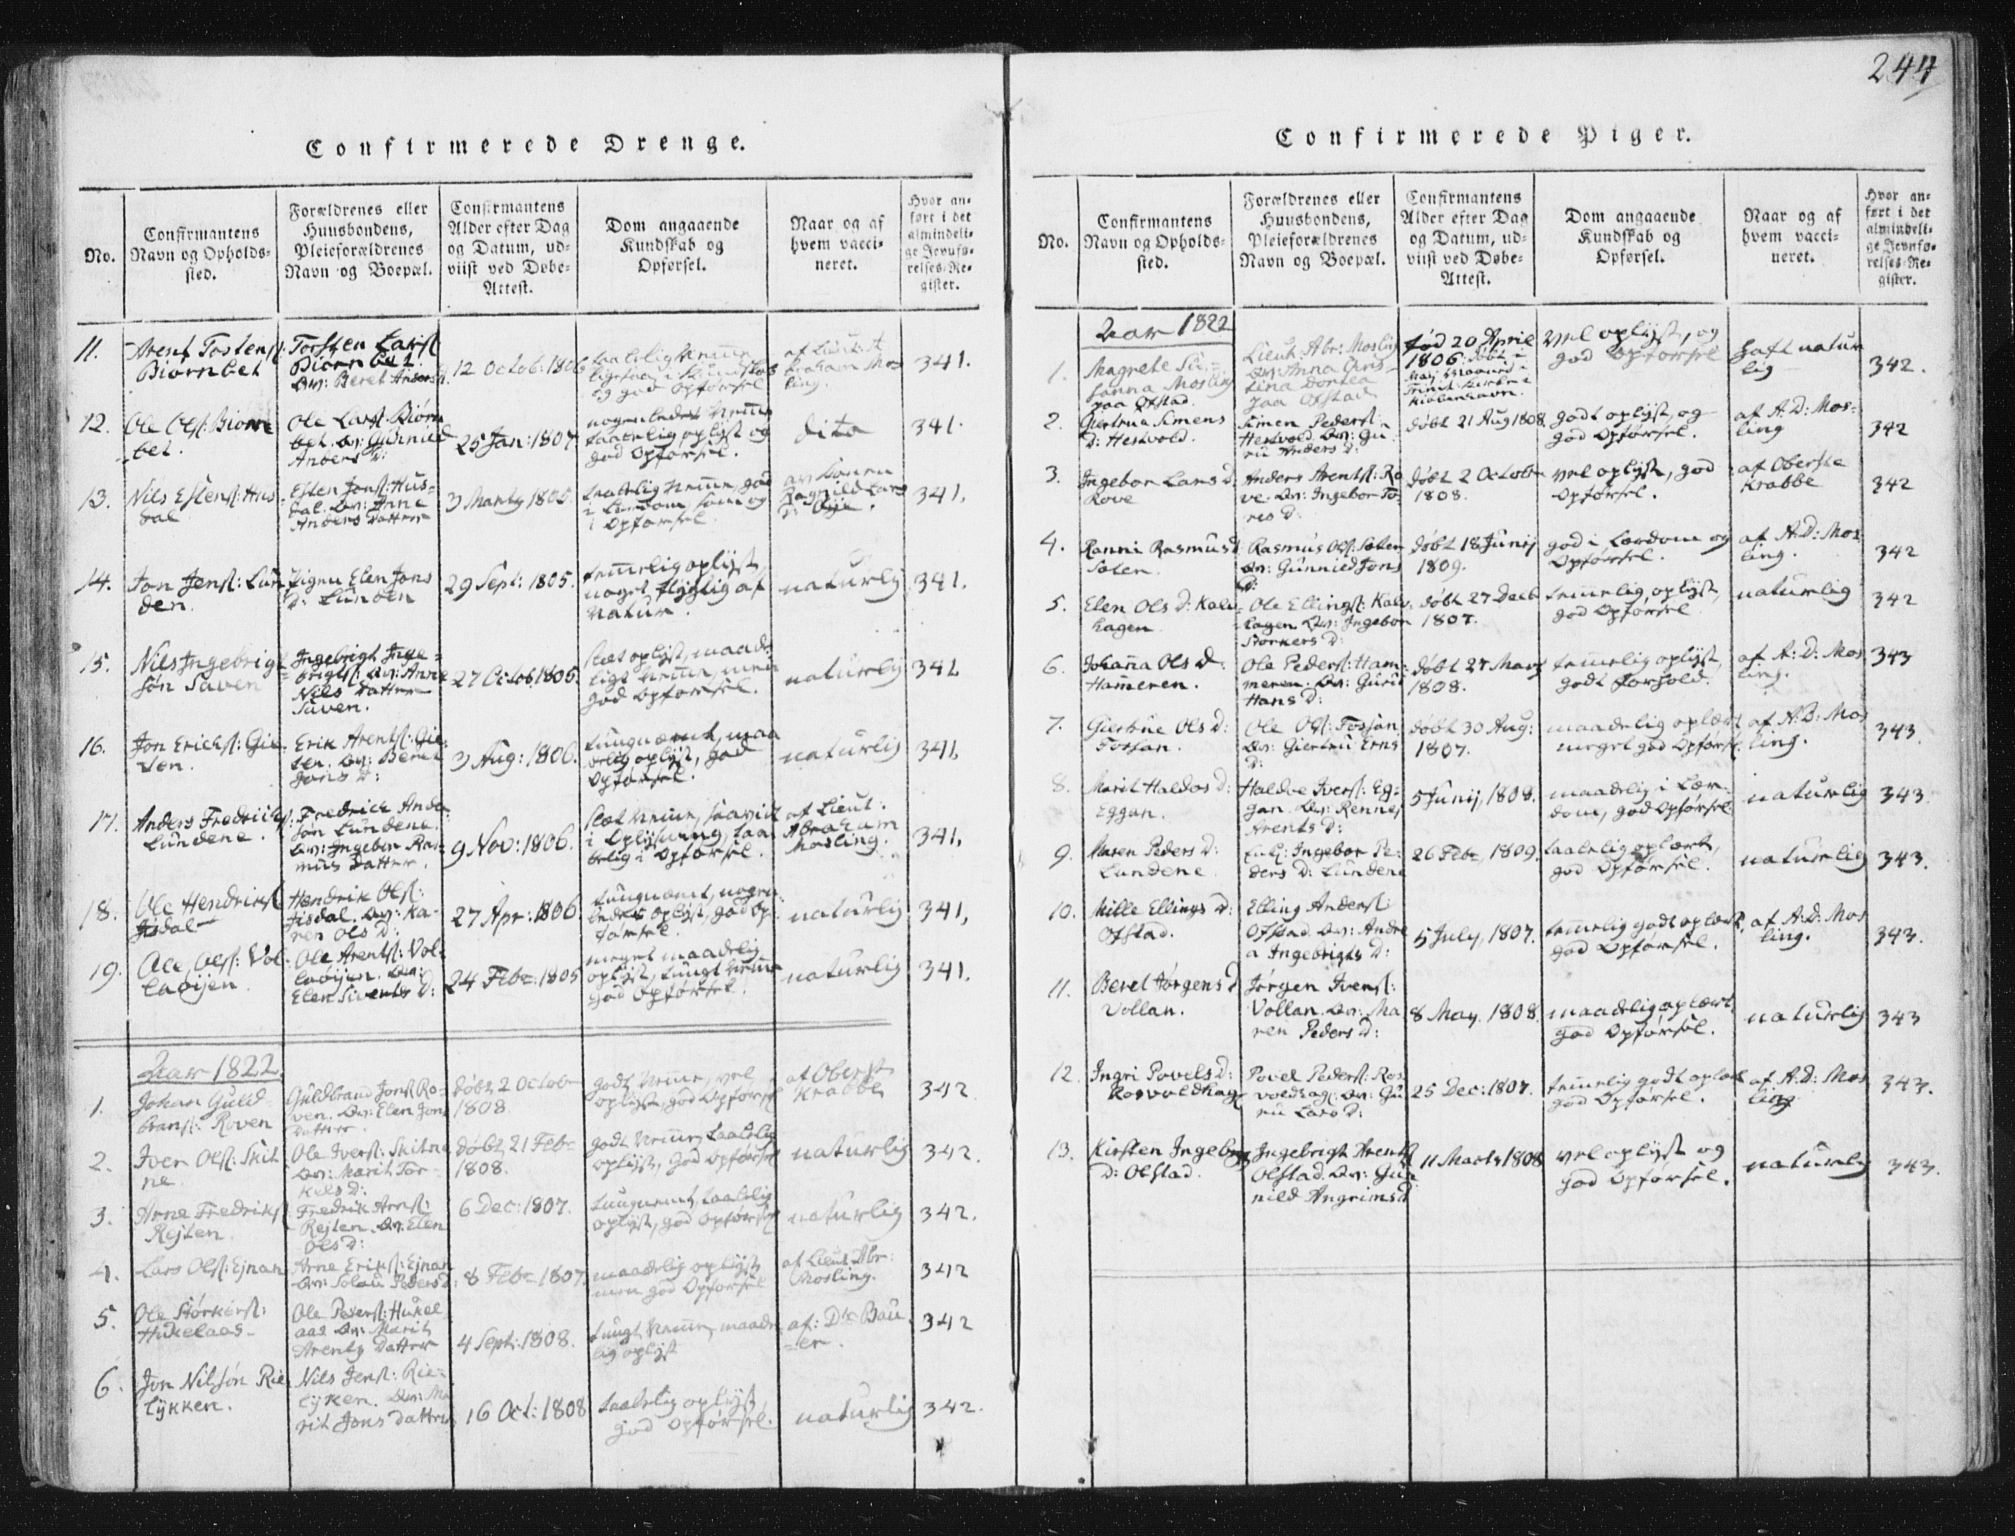 244
Confirmerede Drenge.
No.
Confirmantens
Navn og Opholds-
sted.
Forældrenes eller
Huusbondens,
Pleieforældrenes
Navn og Boepæl.
Confirmantens
Alder efter Dag
og Datum, ud-
viist ved Døbe-
Attest.
Dom angaaende
Kundskab og
Opførsel.
Naar og af
hvem vacci-
neret.
Hvor an-
ført i det
almindeli-
ge Jevnfø-
relses-Re-
gister.
11.
Arent Tostens:
Biørnbet
Torsten Lars:
Biørnbet.
Qv: Beret Anders
12 Octob: 1806
og god Opførsel
af Lieut: A
braham Mos
ling.
341.
12.
Ole Ols: Biørn
bet.
Ole Lars: Biørn
bet. Qv: Gunnild
Anders D:
25 Jan: 1807
nogenledes Nemme
taalelig oplyst og
god Opførsel.
dito
341.
13.
Nils Estens: Hus
dal
Esten Jons: Hus-
dal. Qv: Anne
Anders Datter
3 Marty 1805.
taalelig Nemme, god
i Lærdom som og
i Opførsel.
Ragnild Lars
D: Øye.
341.
14.
Jon Jens: Lun
den.
Pigen Elen Jons
D: Lunden
29 Sept: 1805.
temmelig oplyst,
noget flygtig af
Natur.
naturlig
341.
15.
Nils Ingebrigt
søn Saven
Ingebrigt Inge-
brigts: Qv: Anne
Nils Datter
Saven.
27 Octob. 1805.
slet oplyst, maade
ligt Nemme, men
god Opførsel.
naturlig
341
16.
Jon Ericks: Gie
ven.
Erik Arents: Gie-
ven. Qv: Beret
Jons D:
3 Aug: 1806.
tungnæmt, maa
delig oplyst, god
Opførsel.
naturlig
341.
17.
Anders Fredricks:
Lundene.
Fredrick Ander
søn Lundene.
Qv: Ingebor Ras-
mus Datter.
9 Nov: 1806.
slet Nemme, saavidt
i Oplysning, taa
delig i Opførsel.
af Lieut:
Abraham
Mosling.
341.
18.
Ole Hendriks:
Jisdal
Hendrik Ols:
Jisdal. Qv: Ka-
ren Ols D:
27 Apr: 1806.
tungnæmt, nogen
ledes oplyst, god Op-
førsel.
naturlig
341.
19.
Ole Ols: Vol-
laøijen
Ole Arents: Vol-
laøijen. Qv:
Elen Sivents D:
24 Febr: 1805
meget maadelig
oplyst, tungt Nemme
god Opførsel.
naturlig
341.
Aar 1822.
1.
Johan Guld-
brans: Roven
Guldbrand Jons: Ro-
ven. Qv: Elen Jons
Datter.
døbt 2 Octobr
1808.
godt Nemme, vel
oplyst, god Opførsel
af Oberst
Krabbe
342
2.
Iver Ols: Skit
ne.
Ole Ivers: Skitne
Qv: Marit Tor-
kels D:
døbt 21 Febr
1808.
godt Nemme, taalelig
oplyst, god Opførsel
naturlig
342.
3.
Arne Fredriks:
Rejten.
Fredrik Arns:
Rejten. Qv: Elen
Ols D:
6 Dec: 1807.
tungnemt, taalelig
oplyst, god Opførsel
naturlig
342.
4.
Lars Ols: Ejnan
Arne Eriks: Ejnan
Qv: Solau Peders D:
8 Febr 1807.
maadelig oplyst
men god Opførsel
af Lieut Abr:
Mosling.
342
5.
Ole Størkers:
Hukelaas
Ole Peders: Hukel
aas Qv: Marit
Arents Datter
4 Sept: 1808.
tungt Nemme, maade
lig oplyst
af: Dr Bau
er.
342
6.
Jon Nilssøn Rie
lykken.
Nils Jens: Rie-
lykken. Qv: Ma
rit Jons Datter
16 Oct: 1808
taalelig oplyst,
god Opførsel.
naturlig
342.
Confirmerede Piger.
No.
Confirmantens
Navn og Opholds-
sted.
Forældrenes eller
Huusbondens,
Pleieforældrenes
Navn og Boepæl.
Confirmantens
Alder efter Dag
og Datum, ud-
viist ved Døbe-
Attest.
Dom angaaende
Kundskab og
Opførsel.
Naar og af
hvem vacci-
neret.
Hvor an-
ført i det
almindeli-
ge Jevnfø-
relses-Re-
gister.
Aar 1822
1.
Magrete Su-
sanna Mosling
paa Ofstad.
Lieut: Abr: Mosling
Qv: Anna Chris-
tina Dortea
paa Ofstad
fød 20 April
1806. døbt i
Kiøbenhavn.
vel oplyst, og
god Opførsel
haft natur
lig
342.
2.
Giertrud Simens
D: Hestvold.
Simen Peders:
Hestvold. Qv: Gu-
ru Anders D:
døbt 21 Aug 1808.
godt oplyst, og
god Opførsel.
af A: D: Mos-
ling
342
3.
Ingebor Lars D:
Rove
Anders Arents: Ro
ve. Qv: Ingebor To-
res D:
døbt 2 Octobr
1808.
vel oplyst, god
Opførsel.
af Oberste
Krabbe
342
4.
Ranni Rasmus D
Soten.
Rasmus Ols: Soten
Qv: Gunnild Jons
D:
døbt 18 Junij
1809.
god i Lærdom og
Opførsel.
af A: D: Mos
ling.
342
5.
Elen Ols D: Kalv
hagen
Ole Ellings: Kalv
hagen. Qv: Ingebor
Størkers D:
døbt 27 Decb
1807.
temmelig oplyst,
god Opførsel
naturlig
342
6.
Johanna Ols D:
Hammeren.
Ole Peders: Ham-
meren. Qv: Guru
Hans D:
døbt 27 Marty
1808.
temmelig oplyst,
godt Forhold.
af A: D: Mos
ling.
343
7.
Giertrue Ols D:
Fossan.
Ole Ols: Fossan
Qv: Giertru Erns
D:
døbt 30 Aug:
1807.
maadelig oplært
meget god Opførsel.
af A: D: Mos
ling.
343.
8.
Marit Haldos D:
Eggan.
Haldoe Ivers: Eg-
gan. Qv: Rennes
Arents D:
5 Junij 1808.
maadelig i Lær
dom, god Opførsel
naturlig
343.
9.
Maren Peders D:
Lundene
Ingebor Pe-
ders D: Lundene
26 Febr 1809.
taalelig oplært,
god Opførsel.
naturlig
343.
10.
Mille Ellings D:
Ofstad.
Elling Anders:
Ofstad Qv: Andre
a Ingebrigts D:
5 July, 1807.
temmelig godt oplært
god Opførsel.
af A: D: Mos
ling.
343.
11.
Beret Jørgens D
Vollan.
Jørgen Ivers:
Vollan. Qv: Ma
ren Peders D:
8 May. 1808.
maadelig oplært
god Opførsel.
naturlig
343
12.
Ingri Povels D:
Rosvoldhag:
Povel Peders: Ros
voldhag: Qv: Gu
ru Lars D:
25 Dec: 1807.
temmelig godt oplært
god Opførsel.
af A: D: Mos
ling
343.
13.
Kirsten Ingebrigts
D: Olstad.
Ingebrigt Arents:
Olstad. Qv: Gu-
nild Angrims D:
11 Marts 1808
vel oplyst og
god Opførsel.
naturlig
343.